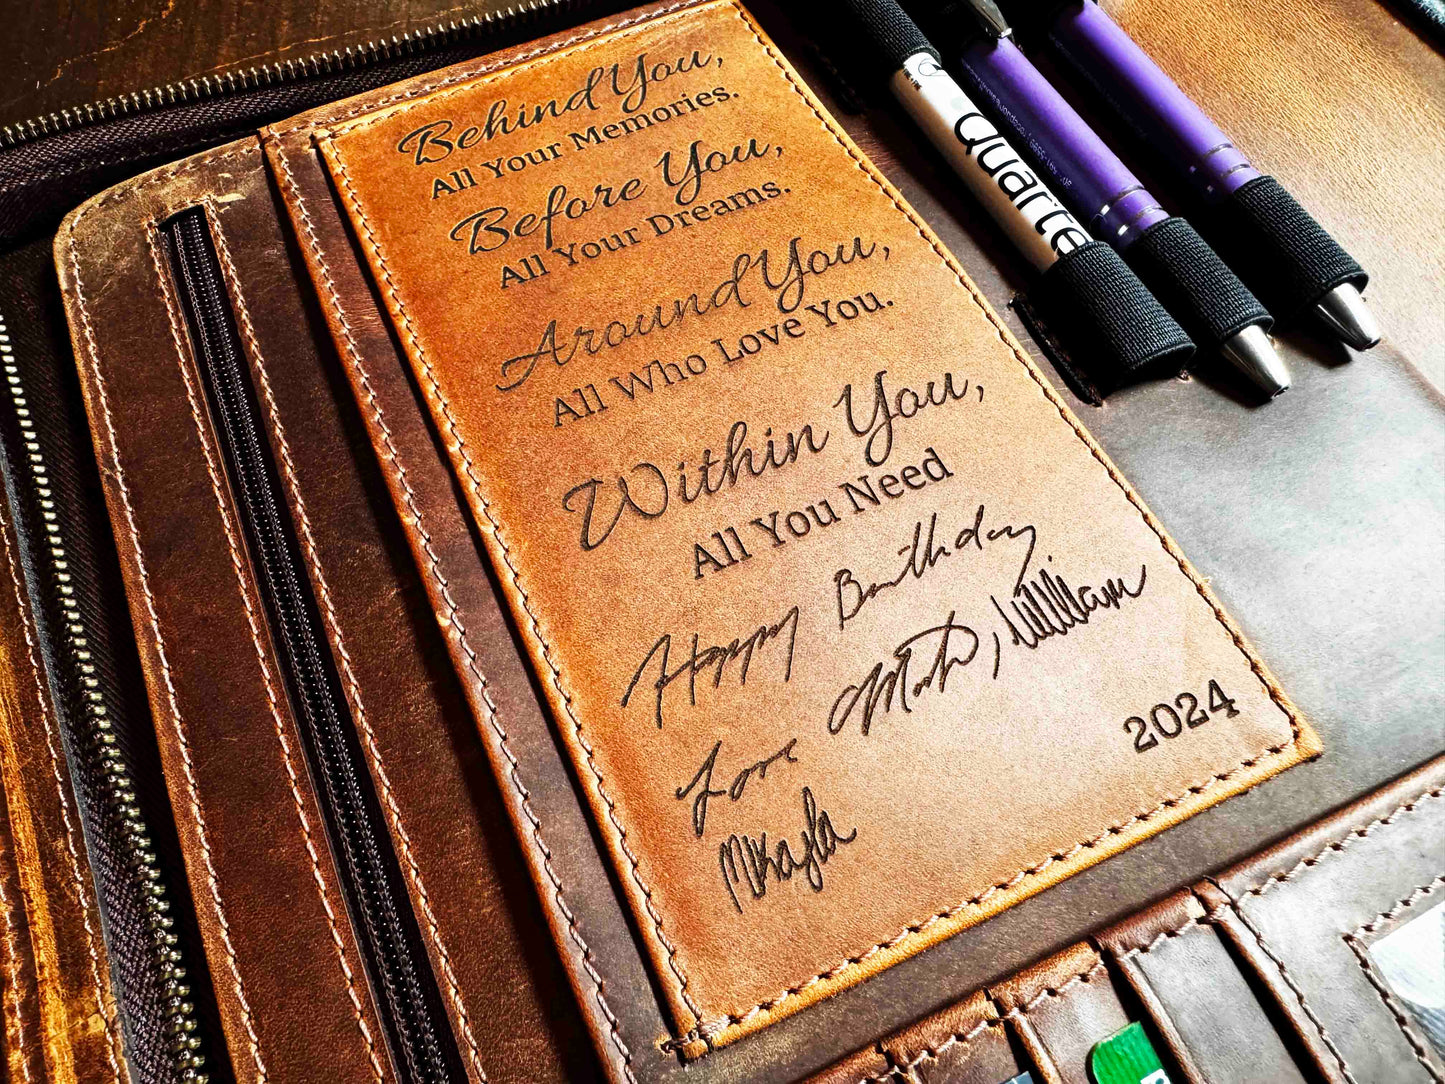 Behind You,
All Your Memories.
Before You,
All Your Dreams.
Around You,
All Who Love You.
Within You,
All You Need
Happy Birthday
Love Mark, William
Mikayla
2024
Quarte